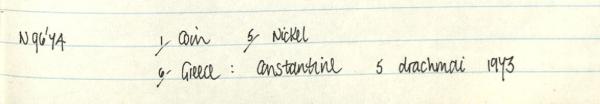 N96'74 1/ Coin 5/ Nickel
6/ Greece : Constantine 5 drachmai 1973